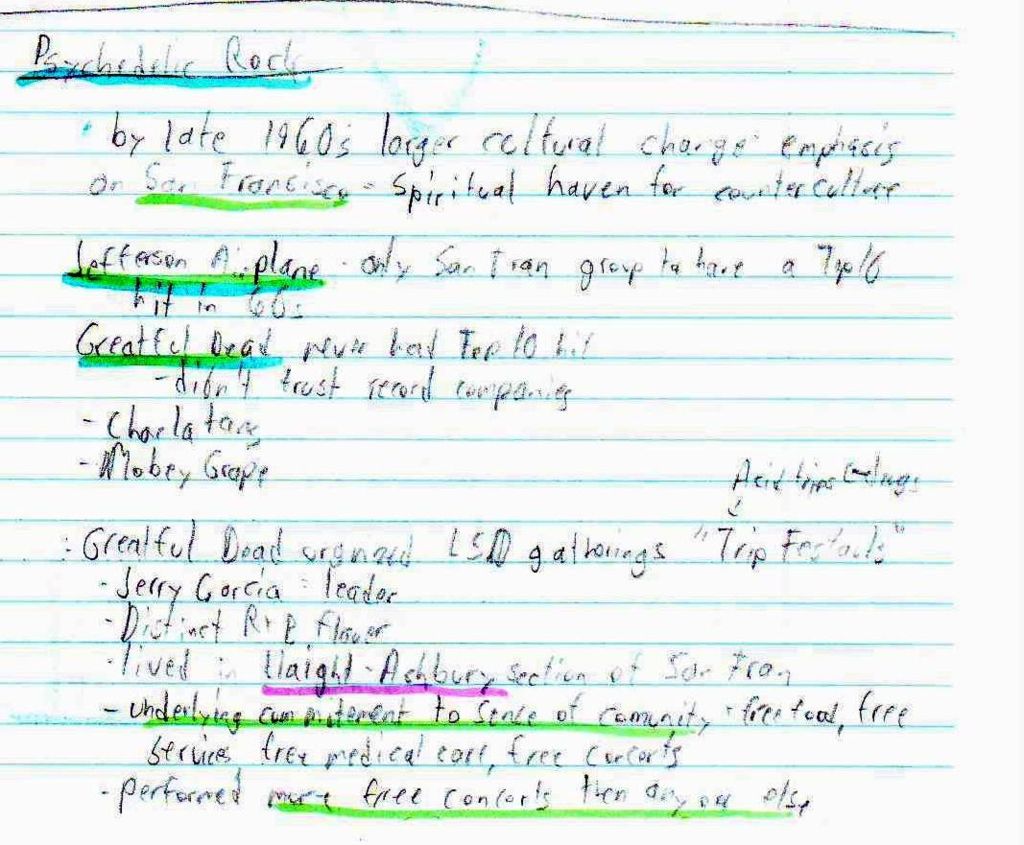 Psychedelic Rock
· by late 1960s larger cultural change emphasis
on San Francisco - Spiritual haven for counterculture
Jefferson Airplane - only San Fran group to have a Top 10
hit in 60s
Greatful Dead never had Top 10 hit
- didn't trust record companies
- Charlatans
- Mobey Grape
Acid trips drugs
: Greatful Dead organized LSD gatherings "Trip Festavls"
- Jerry Garcia = leader
- Distinct R+B flavor
- lived in Haight-Ashbury section of San Fran
- underlying commitement to sence of comunity - free food, free
services, free medical care, free concerts
- performed more free concerts then anyone else